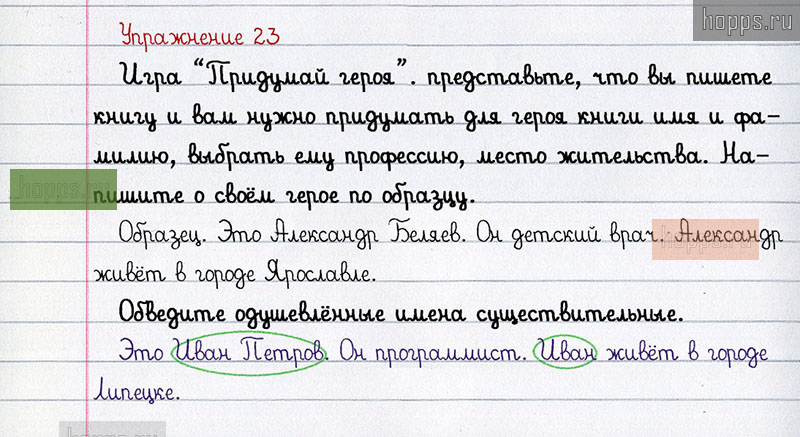 hopps.ru
Упражнение 23
Игра “Придумай героя”. представьте, что вы пишете
книгу и вам нужно придумать для героя книги имя и фа-
милию, выбрать ему профессию, место жительства. На-
hopps.ru
пишите о своём герое по образцу.
Образец. Это Александр Беляев. Он детский врач. Александр
hopps.ru
живёт в городе Ярославле.
Обведите одушевлённые имена существительные.
Это Иван Петров. Он программист. Иван живёт в городе
Липецке.
hopps.ru